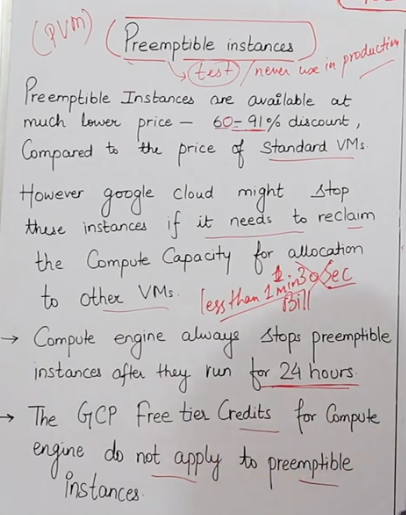 (PVM)
Preemptible instances
(test) / never use in production
Preemptible Instances are available at
much lower price – 60-91% discount,
Compared to the price of Standard VMs.
However google cloud might stop
these instances if it needs to reclaim
the Compute Capacity for allocation
to other VMs. less than 1 min 30 Sec
Bill
→ Compute engine always stops preemptible
instances after they run for 24 hours.
→ The GCP Free tier Credits for Compute
engine do not apply to preemptible
instances.